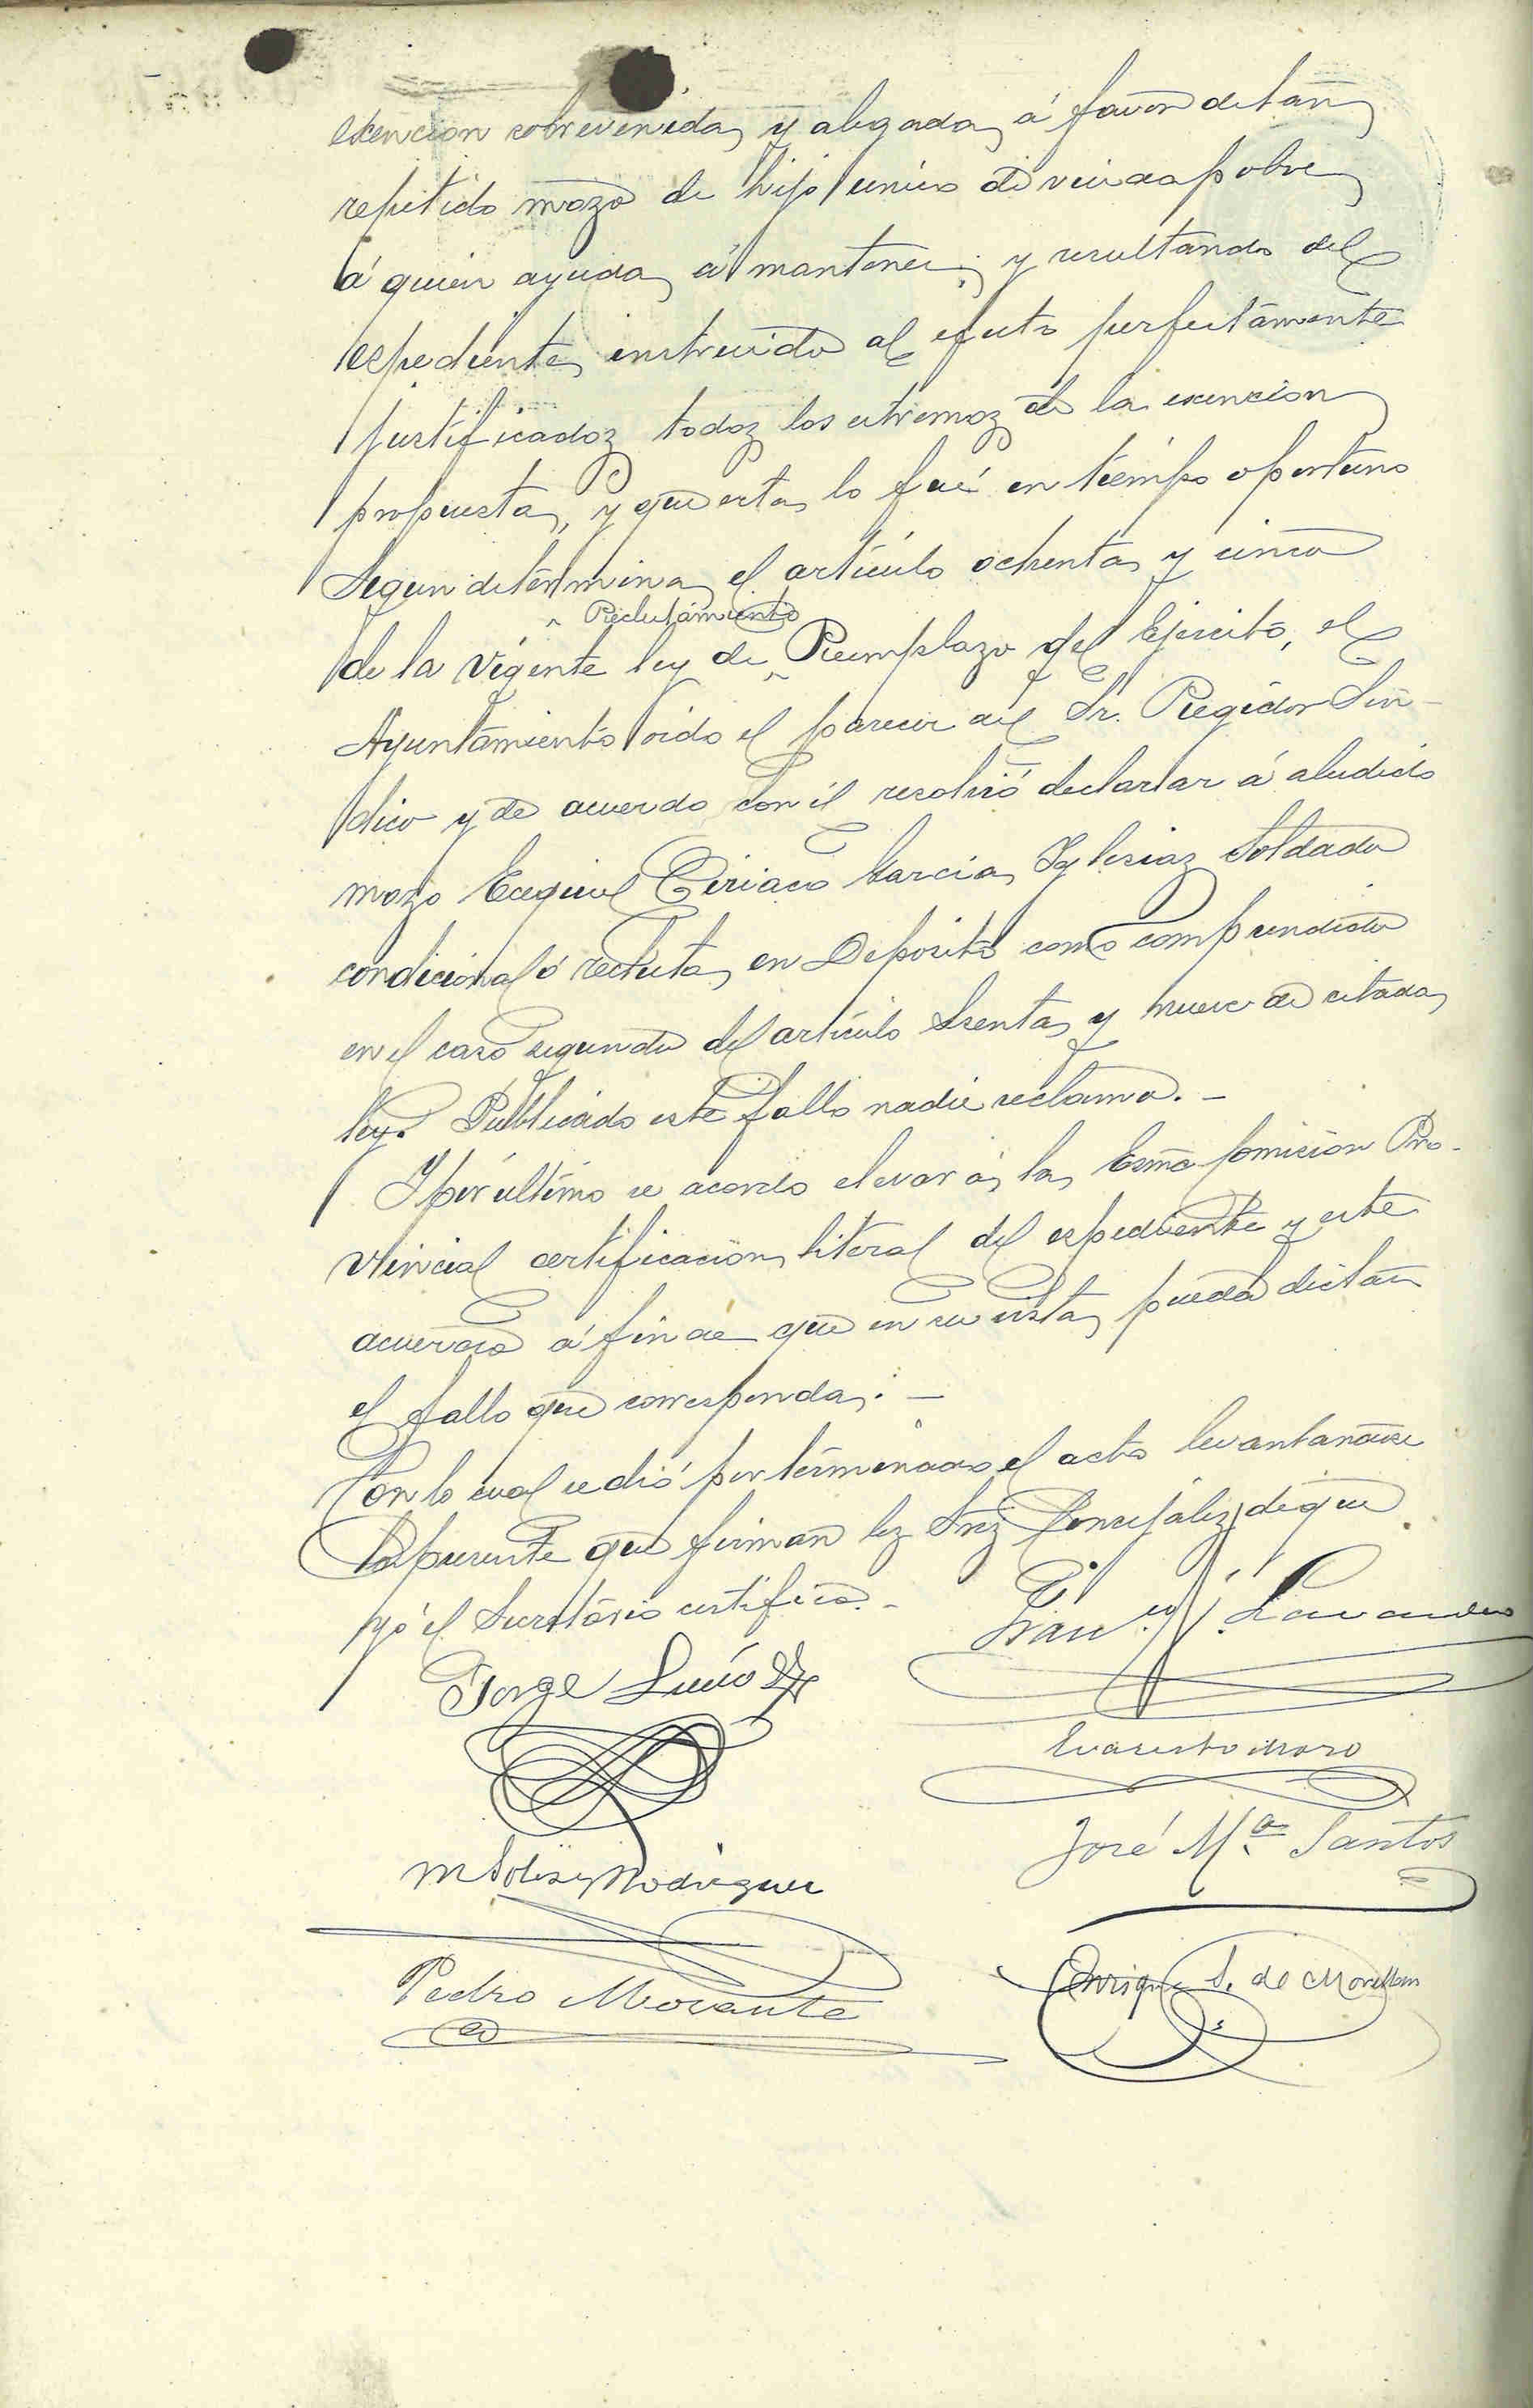 exencion sobrevenida y alegada á favor de tan
repetido mozo de hijo unico de viuda pobre
á quien ayuda á mantener; y resultando del
espediente instruido al efecto perfectamente
justificados todos los estremos de la exencion
propuesta, y que esta lo fué en tiempo oportuno
Segun determina el artículo ochenta y cinco
Reclutamiento
de la vigente ley de Reemplazo del Ejército, el
Ayuntamiento oido el parecer del Sr. Regidor Sín-
dico y de acuerdo con él resolvió declarar á aludido
mozo Ecequiel Ciriaco Garcia Yglesias Soldado
condicional ó recluta en Deposito como comprendido
en el caso segundo del artículo Sesenta y nueve de citada
ley. Publicado este fallo nadie reclamó. -
Y por último se acordó elevar á la Exma Comision Pro-
vincial certificacion literal del espediente y este
acuerdo á fin de que en su vista pueda dictar
el fallo que corresponda. -
Con lo cual se dió por terminado el acto levantandose
la presente que firman los Sres Concejales, de que
yó el Secretário certifico. -
Franco Lavandero
Jorge Lucio
Evaristo Moro
José Mª Santos
M Solis y Rodriguez
Pedro Morante
Enrique S. de Movellan